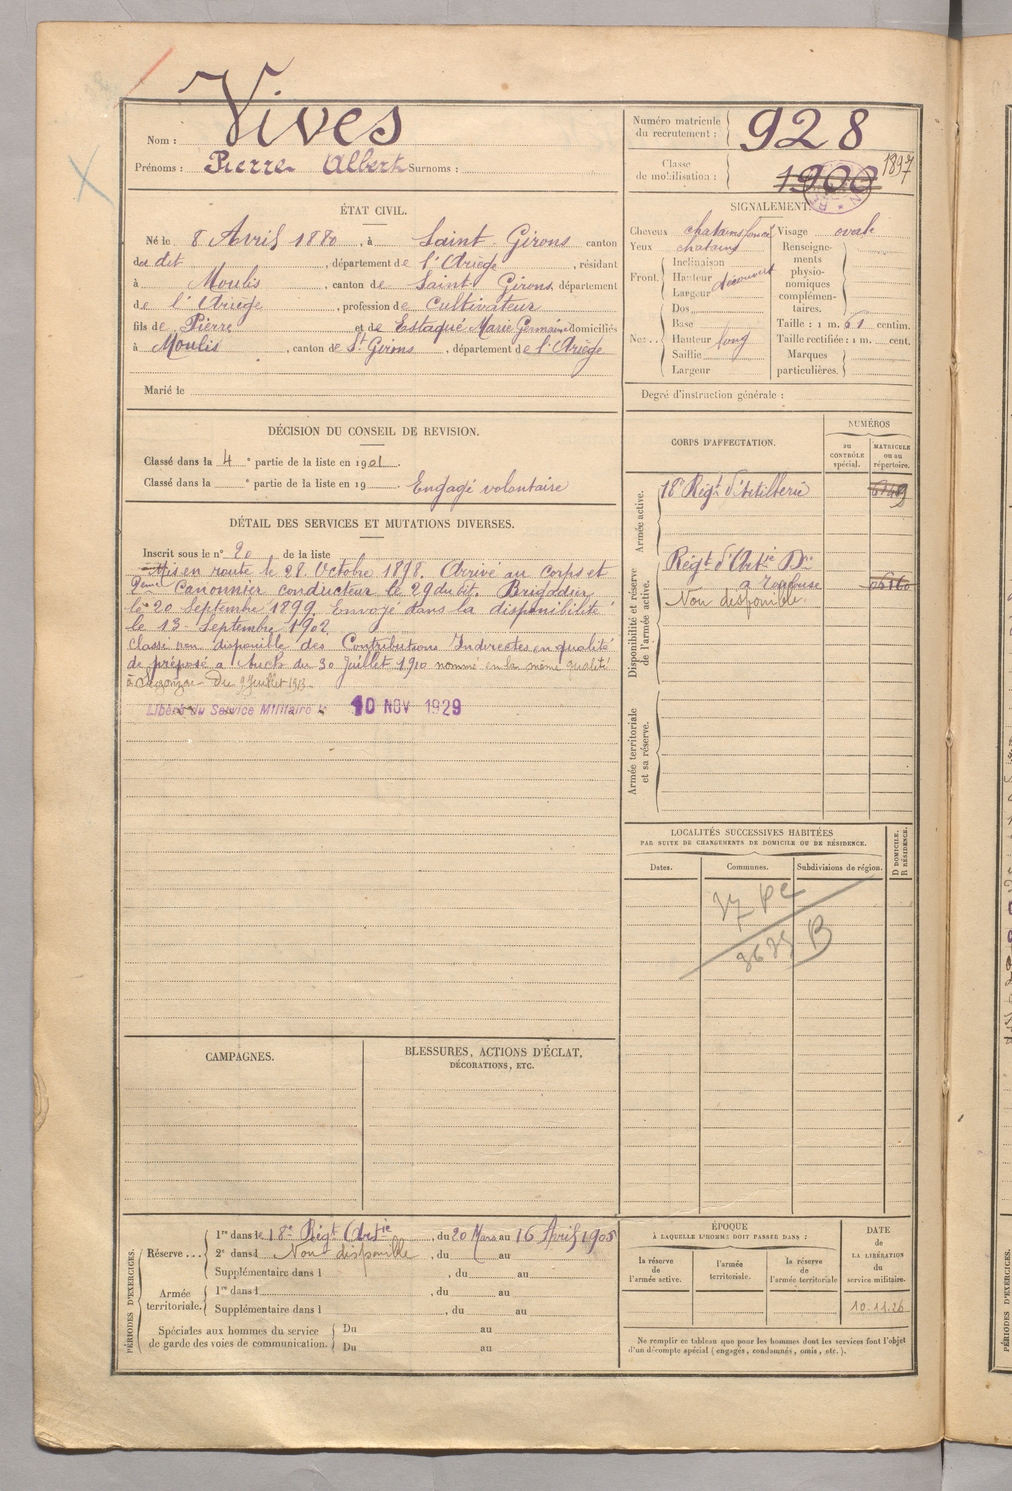 Nom : Vives
Prénoms : Pierre Albert Surnoms :
Numéro matricule du recrutement : 928
Classe de mobilisation : 1900 1897
ÉTAT CIVIL.
Né le 8 Avril 1880, à Saint-Girons canton
du dit, département de l'Ariège, résidant
à Moulis, canton de Saint-Girons, département
de l'Ariège, profession de Cultivateur
fils de Pierre et de Estaqué Marie Germaine domiciliés
à Moulis, canton de St Girons, département de l'Ariège
Marié le
SIGNALEMENT.
Cheveux chatains foncés Visage ovale
Yeux chatains
Front. Inclinaison
Hauteur découvert
Largeur
Nez. Dos
Base
Hauteur long
Saillie
Largeur
Renseignements physionomiques complémentaires.
Taille : 1 m. 61 centim.
Taille rectifiée : 1 m. cent.
Marques particulières.
Degré d'instruction générale :
DÉCISION DU CONSEIL DE REVISION.
Classé dans la 4 e partie de la liste en 1901.
Classé dans la e partie de la liste en 19 Engagé volontaire
DÉTAIL DES SERVICES ET MUTATIONS DIVERSES.
Inscrit sous le n° 20 de la liste
Mis en route le 28 Octobre 1898. Arrivé au corps et
2ème Canonnier conducteur le 29 du dit. Brigadier
le 20 Septembre 1899. Envoyé dans la disponibilité
le 13 Septembre 1902.
Classé non disponible des Contributions Indirectes en qualité
de préposé a Auch du 30 Juillet 1910 nommé en la même qualité
à Du 9 Juillet 1913
Libéré du Service Militaire le 10 NOV 1929
CORPS D'AFFECTATION.
NUMÉROS
AU CONTRÔLE spécial.
MATRICULE ou au répertoire.
Armée active.
18e Régt d'Artillerie
Disponibilité et réserve de l'armée active.
Régt d'Artie
a Toulouse
Non disponible.
Armée territoriale et sa réserve.
LOCALITÉS SUCCESSIVES HABITÉES
PAR SUITE DE CHANGEMENTS DE DOMICILE OU DE RÉSIDENCE.
Dates. Communes. Subdivisions de région. D DOMICILE. R RÉSIDENCE.
CAMPAGNES.
BLESSURES, ACTIONS D'ÉCLAT,
DÉCORATIONS, ETC.
PÉRIODES D'EXERCICES.
Réserve... 1re dans le 18e Régt Artie, du 20 Mars au 16 Avril 1905
2e dans l Non disponible, du au
Supplémentaire dans l, du au
Armée territoriale. 1re dans l, du au
Supplémentaire dans l, du au
Spéciales aux hommes du service de garde des voies de communication. Du au
Du au
ÉPOQUE
À LAQUELLE L'HOMME DOIT PASSER DANS :
la réserve de l'armée active.
l'armée territoriale.
la réserve de l'armée territoriale
DATE DE LA LIBÉRATION du service militaire.
10.11.26
Ne remplir ce tableau que pour les hommes dont les services font l'objet
d'un décompte spécial (engagés, condamnés, omis, etc.).